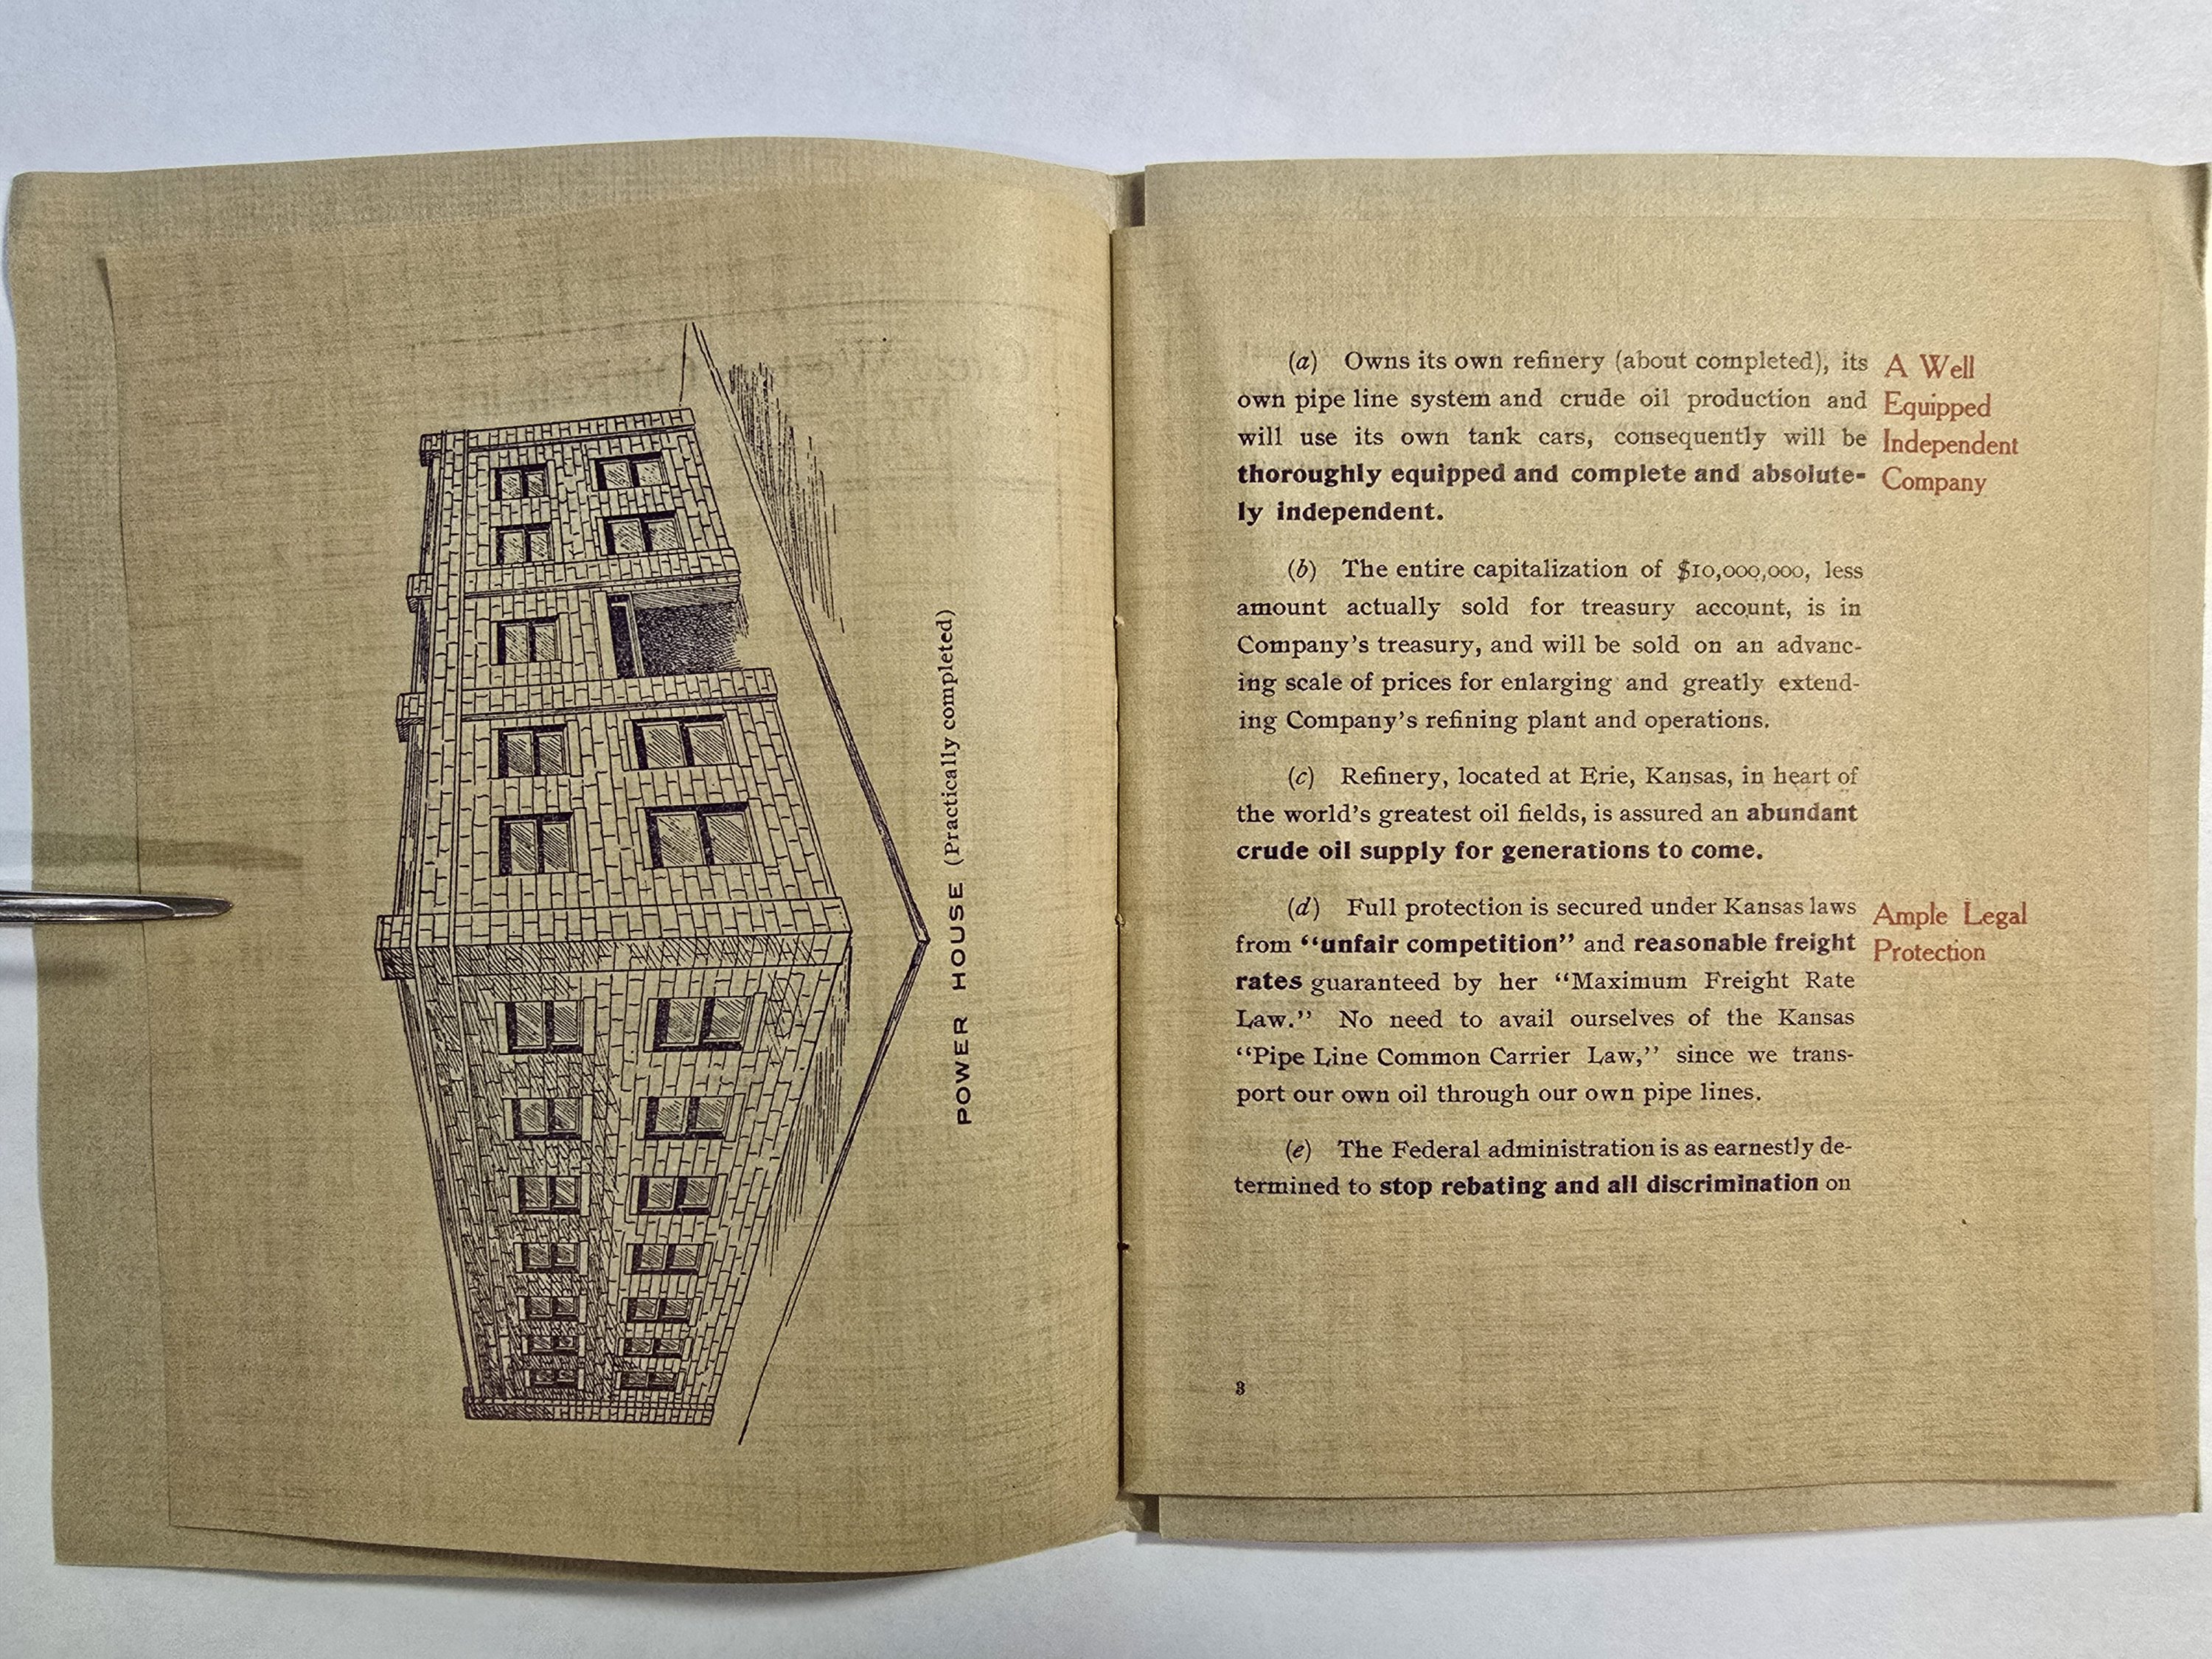 POWER HOUSE (Practically completed)
(a) Owns its own refinery (about completed), its
own pipe line system and crude oil production and
will use its own tank cars, consequently will be
thoroughly equipped and complete and absolute-
ly independent.
A Well
Equipped
Independent
Company
(b) The entire capitalization of $10,000,000, less
amount actually sold for treasury account, is in
Company's treasury, and will be sold on an advanc-
ing scale of prices for enlarging and greatly extend-
ing Company's refining plant and operations.
(c) Refinery, located at Erie, Kansas, in heart of
the world's greatest oil fields, is assured an abundant
crude oil supply for generations to come.
(d) Full protection is secured under Kansas laws
from "unfair competition" and reasonable freight
rates guaranteed by her "Maximum Freight Rate
Law." No need to avail ourselves of the Kansas
"Pipe Line Common Carrier Law," since we trans-
port our own oil through our own pipe lines.
Ample Legal
Protection
(e) The Federal administration is as earnestly de-
termined to stop rebating and all discrimination on
3